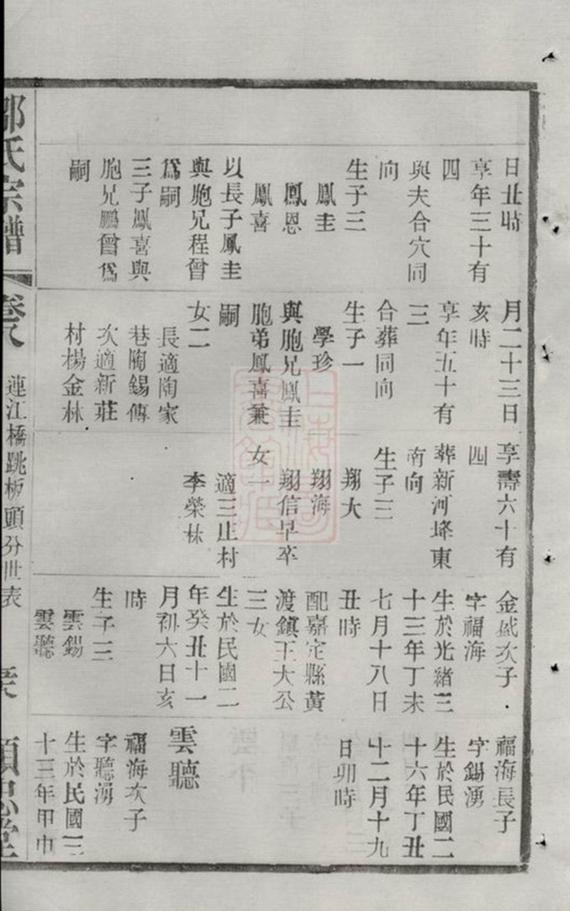 日丑時
享年三十有
四
與夫合穴同
向
生子三
鳳圭
鳳恩
鳳喜
以長子鳳圭
與胞兄程曾
為嗣
三子鳳喜與
胞兄鵬曾為
嗣
月二十三日
亥時
享年五十有
三
合葬同向
生子一
學珍
與胞兄鳳圭
胞弟鳳喜兼
嗣
女二
長適陶家
巷陶錫傳
次適新莊
村楊金林
享壽六十有
四
葬新河埄東
南向
生子三
翔大
翔海
翔信早卒
女一
適三庄村
李榮林
金盛次子
字福海
生於光緒三
十三年丁未
七月十八日
丑時
配嘉定縣黃
渡鎮王大公
三女
生於民國二
年癸丑十一
月初六日亥
時
生子二
雲錫
雲聽
福海長子
字錫湧
生於民國二
十六年丁丑
十二月十九
日卯時
雲聽
福海次子
字聽湧
生於民國三
十三年甲申
鄒氏宗譜
卷八
連江橋跳板頭分世表